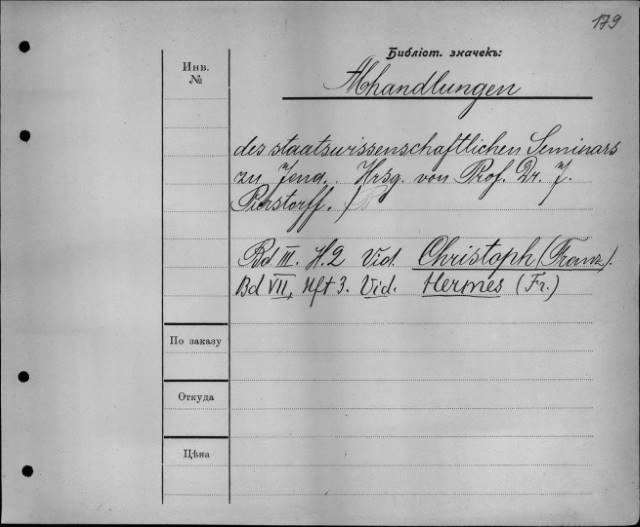 179
Библіот. значекъ:
Инв.
№
Abhandlungen
des staatswissenschaftlichen Seminars
zu Jena. Hrsg. von Prof. Dr. J.
Pierstorff.
Bd III. H.2 Vid. Christoph (Franz).
Bd VII, Hft 3. Vid. Hermes (Fr.)
По заказу
Откуда
Цѣна